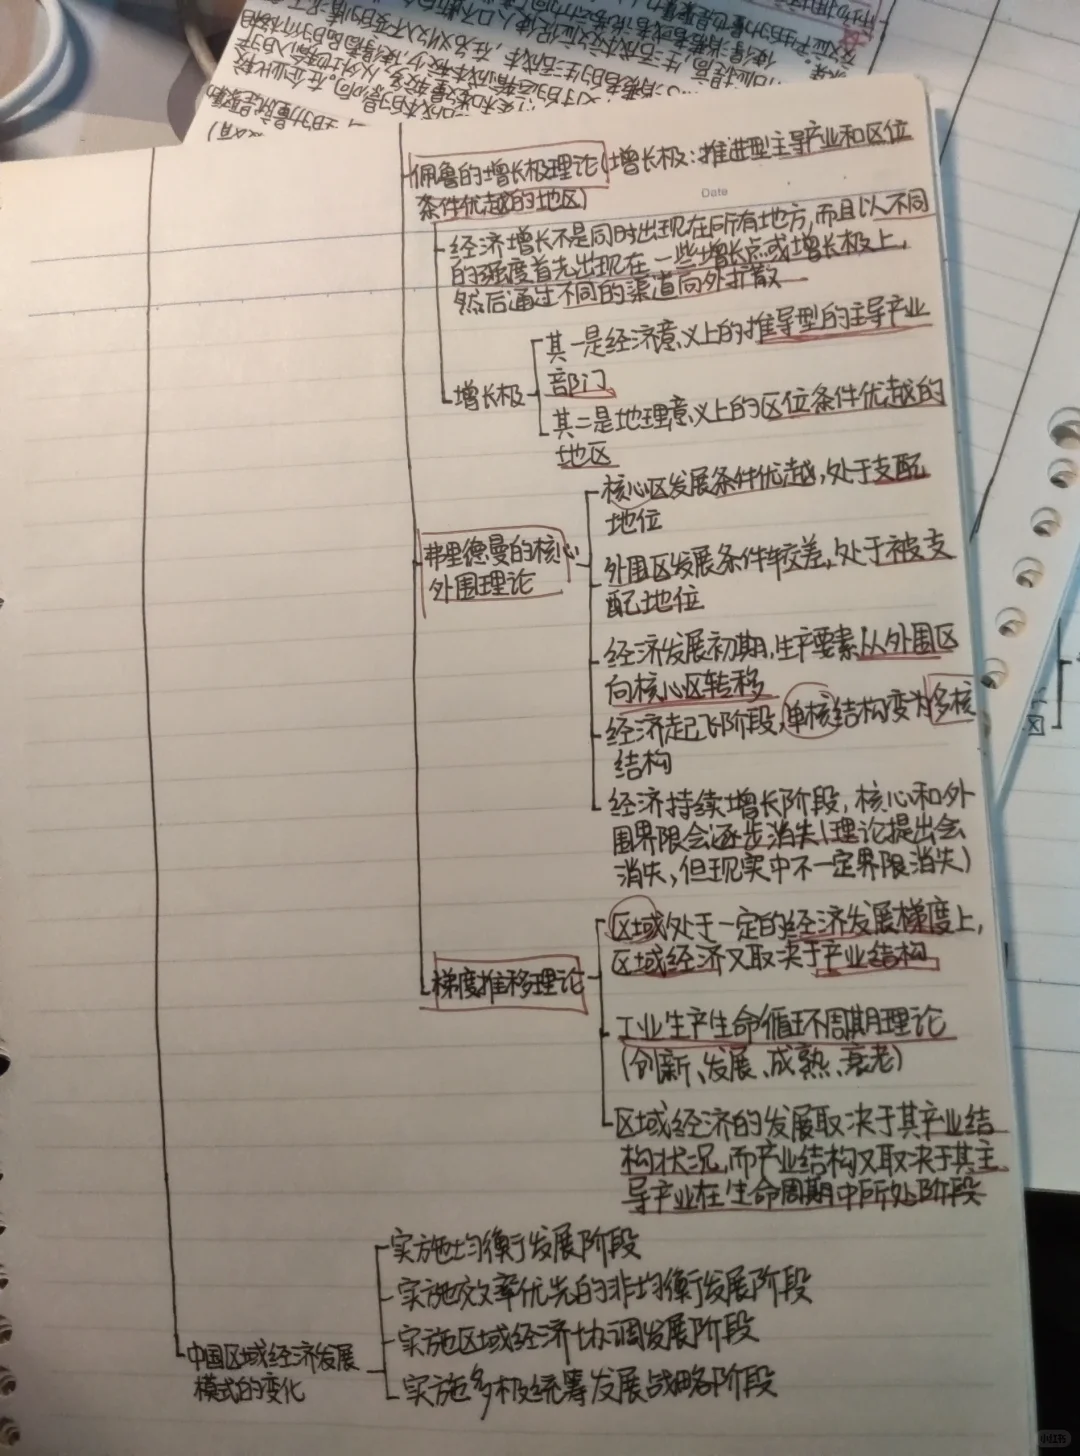 佩鲁的增长极理论(增长极:推进型主导产业和区位
条件优越的地区)
Date
经济增长不是同时出现在所有地方,而且以不同
的强度首先出现在一些增长点或增长极上,
然后通过不同的渠道向外扩散
增长极
其一是经济意义上的推导型的主导产业
部门
其二是地理意义上的区位条件优越的
地区
弗里德曼的核心
外围理论
核心区发展条件优越,处于支配
地位
外围区发展条件较差,处于被支
配地位
经济发展初期,生产要素从外围区
向核心区转移
经济起飞阶段,单核结构变为多核
结构
经济持续增长阶段,核心和外
围界限会逐步消失(理论提出会
消失,但现实中不一定界限消失)
梯度推移理论
区域处于一定的经济发展梯度上,
区域经济又取决于产业结构
工业生产生命循环周期理论
(创新、发展、成熟、衰老)
区域经济的发展取决于其产业结
构状况,而产业结构又取决于其主
导产业在生命周期中所处阶段
中国区域经济发展
模式的变化
实施均衡发展阶段
实施效率优先的非均衡发展阶段
实施区域经济协调发展阶段
实施多极统筹发展战略阶段
区
小红书